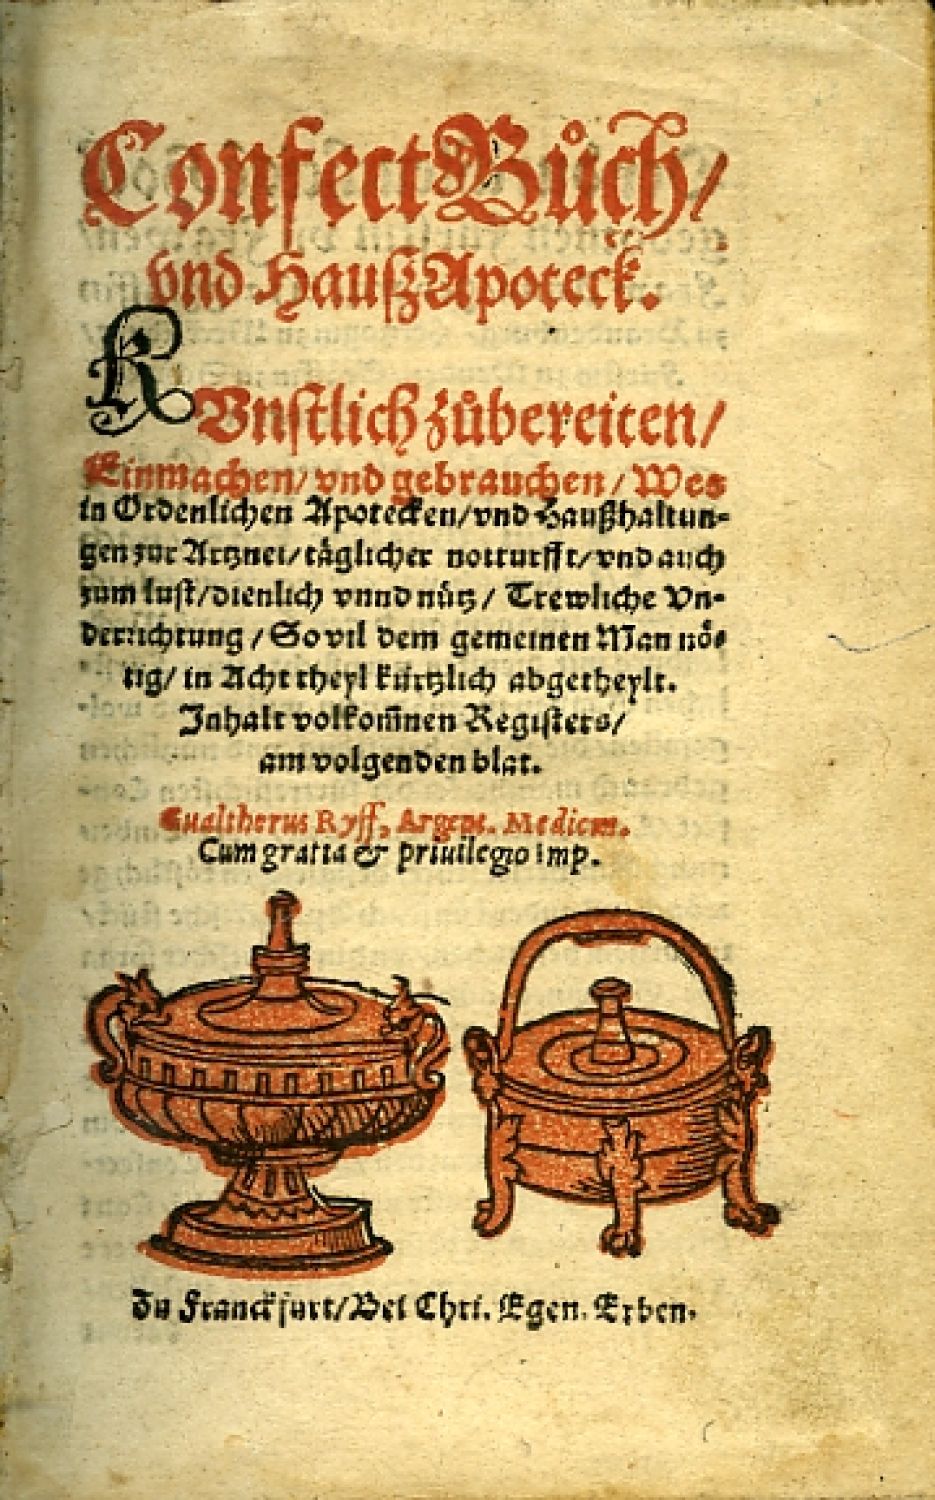 Confect Bůch/
vnd Hauß Apoteck.
KVnstlich zůbereiten/
Einmachen/ vnd gebrauchen/ Wes
in Ordenlichen Apotecken/ vnd Haußhaltun-
gen zur Artznei/ täglicher notturfft/ vnd auch
zum lust/ dienlich vnnd nütz/ Trewliche Vn-
derrichtung/ So vil dem gemeinen Man nö-
tig/ in Acht theyl kürtzlich abgetheylt.
Inhalt volkom̃nen Registers/
am volgenden blat.
Gualtherus Ryff, Argent. Medicus.
Cum gratia & priuilegio Imp.
Zu Franckfurt/ Bei Chri. Egen. Erben.